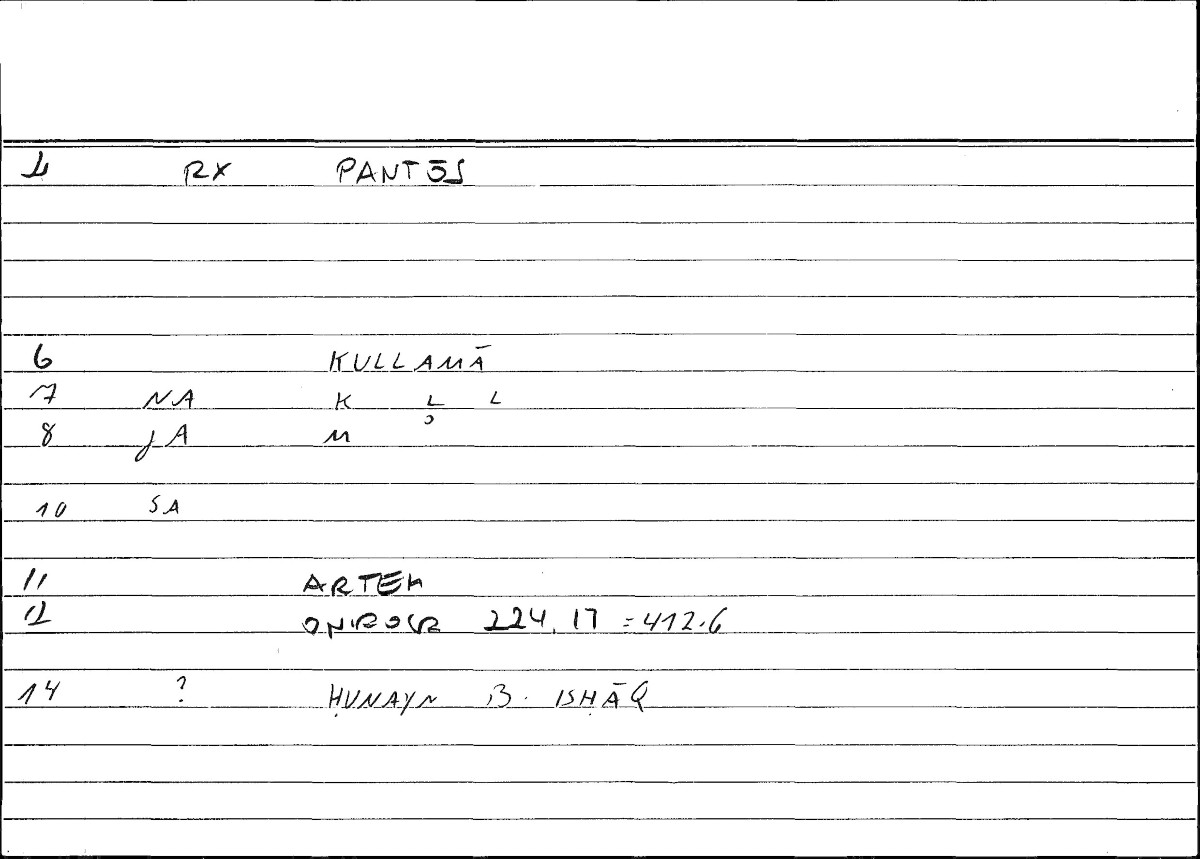 1 RX PANTŌS
6 KULLAMĀ
7 NA K L L
8 JA M
10 SA
11 ARTEM
12 ONIROCR 224.17 = 412.6
14 ? ḤUNAYN B. ISḤĀQ